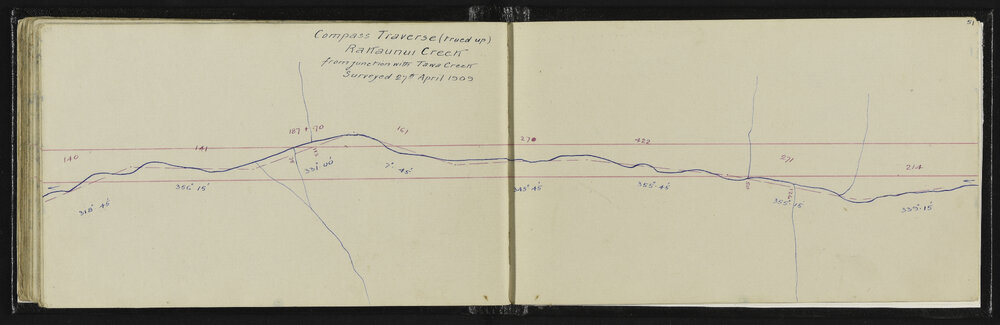 51
Compass Traverse (trued up)
Rakaunui Creek
from junction with Tawa Creek
Surveyed 27th April 1909
140
141
187 + 70
161
270
422
271
214
318° 45'
356° 15'
331° 00'
7° 45'
343° 45'
355° 45'
355° 15'
339° 15'